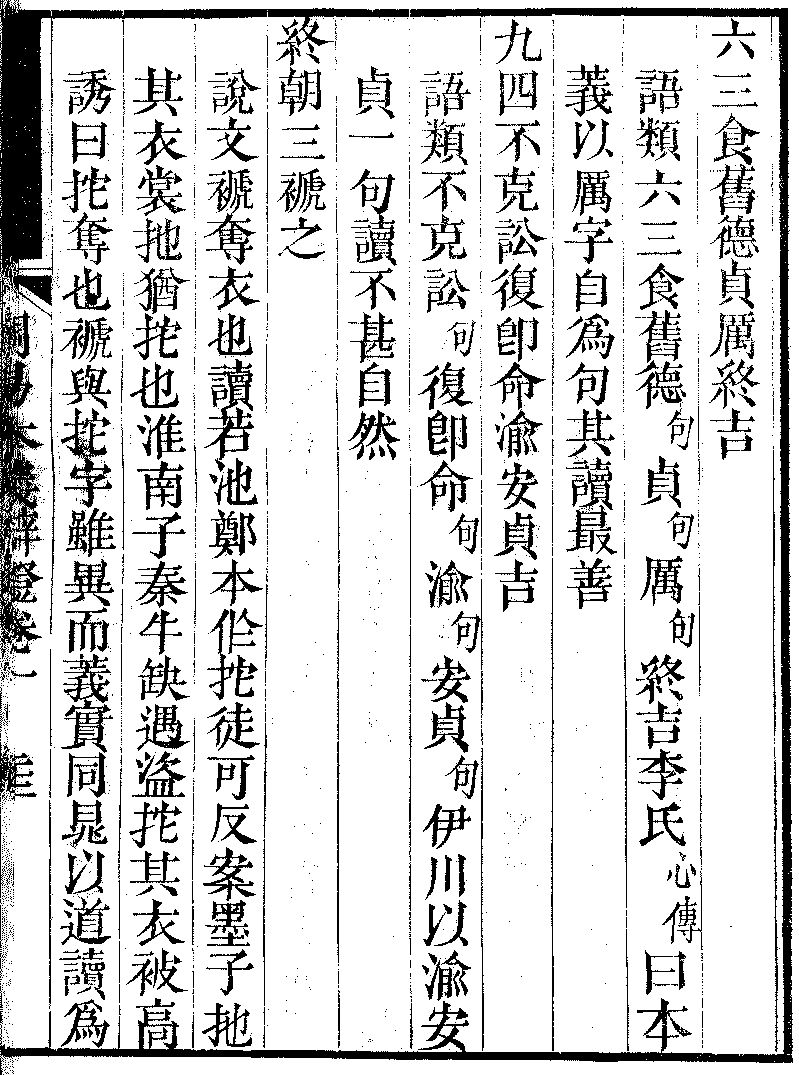 六三食舊德貞厲終吉
語類六三食舊德句貞句厲句終吉李氏心傳曰本
義以厲字自爲句其讀最善
九四不克訟復卽命渝安貞吉
語類不克訟句復卽命句渝句安貞句伊川以渝安
貞一句讀不甚自然
終朝三褫之
說文褫奪衣也讀若池鄭本作拕徒可反案墨子扡
其衣裳扡猶拕也淮南子秦牛缺遇盜拕其衣被高
誘曰拕奪也褫與拕字雖異而義實同晁以道讀爲
周易本義辨證卷一